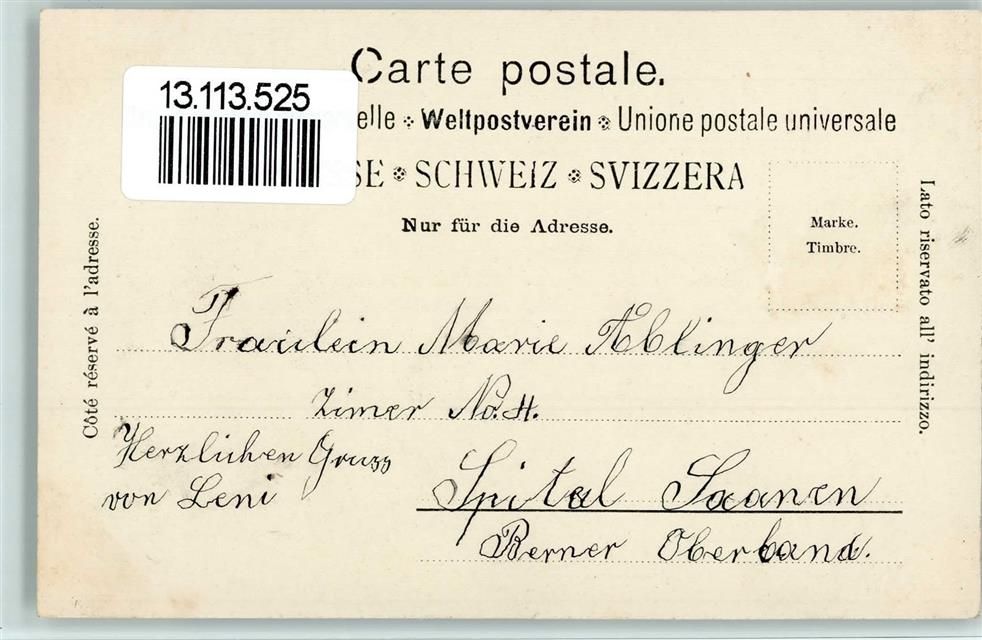 Carte postale.
13.113.525
elle Weltpostverein Unione postale universale
SE SCHWEIZ SVIZZERA
Nur für die Adresse.
Marke.
Timbre.
Côté réservé à l'adresse.
Lato riservato all' indirizzo.
Fraulein Marie Ablinger
Zimer No. 4.
Herzlichen Gruss
von Leni
Spital Saanen
Berner Oberland.